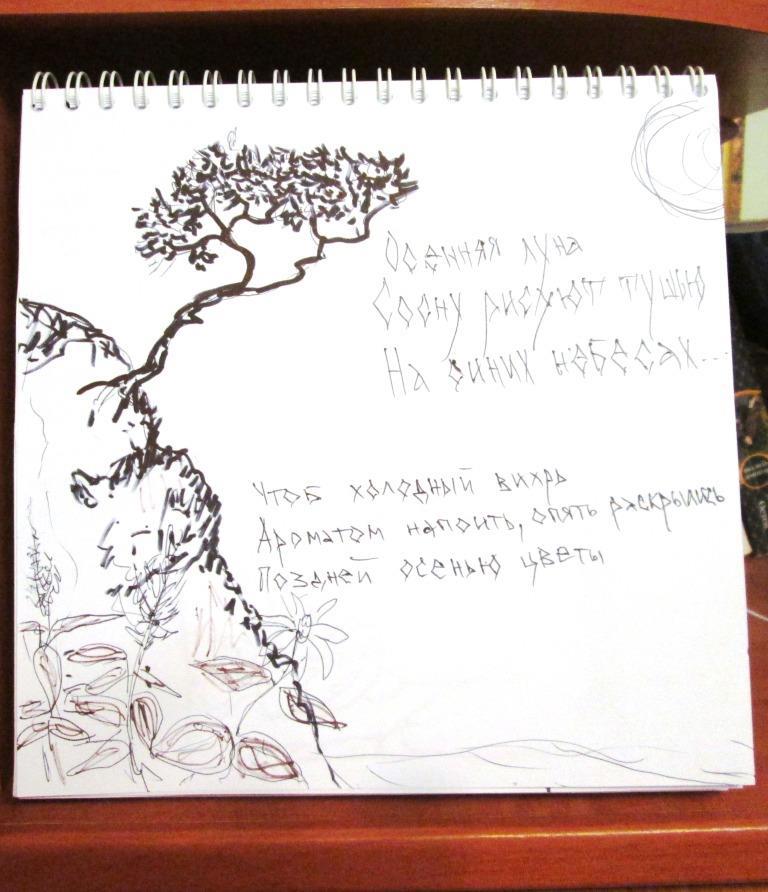 Осенняя луна
Сосну рисуют тушью
На синих небесах...
Чтоб холодный вихрь
Ароматом напоить, опять раскрылись
Поздней осенью цветы